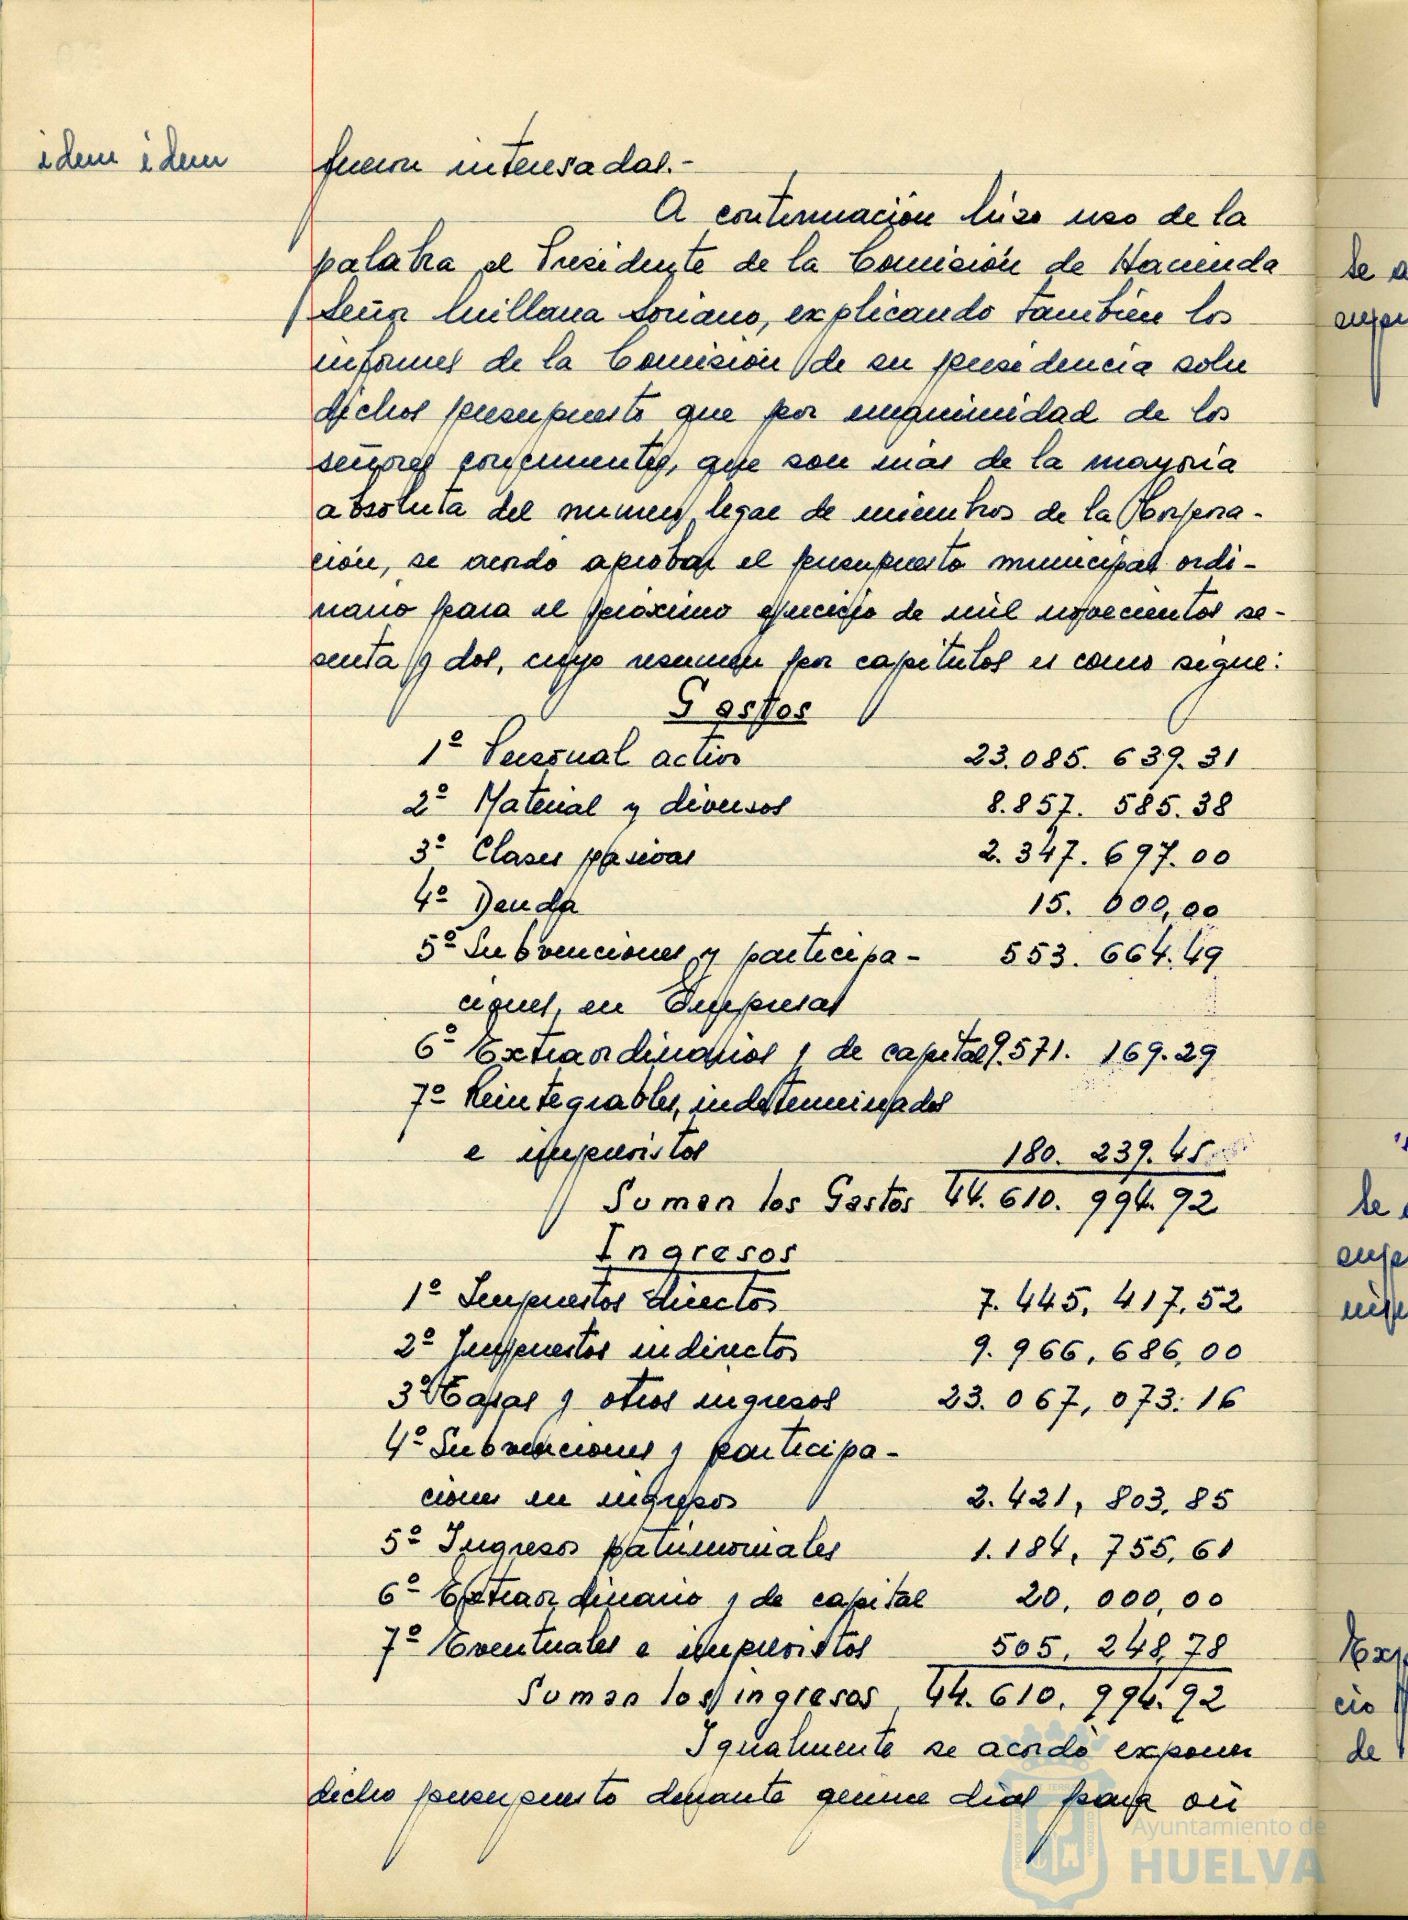 idem idem
fueron interesadas.-
A continuación hizo uso de la
palabra el Presidente de la Comisión de Hacienda
Señor Millana Soriano, explicando también los
informes de la Comisión de su presidencia sobre
dichos presupuesto que por unanimidad de los
señores concurrentes, que son más de la mayoría
absoluta del numero legal de miembros de la Corpora-
ción, se acordó aprobar el presupuesto municipal ordi-
nario para el próximo ejercicio de mil novecientos se-
senta y dos, cuyo resumen por capítulos es como sigue:
Gastos
1º Personal activo 23.085.639.31
2º Material y diversos 8.857.585.38
3º Clases pasivas 2.347.697.00
4º Deuda 15.000,00
5º Subvenciones y participa- 553.664.49
ciones en Empresas
6º Extraordinarios y de capital 9.571.169.29
7º Reintegrables, indeterminados
e imprevistos 180.239.45
Suman los Gastos 44.610.994.92
Ingresos
1º Impuestos directos 7.445,417,52
2º Impuestos indirectos 9.966,686,00
3º Tasas y otros ingresos 23.067,073.16
4º Subvenciones y participa-
ciones en ingresos 2.421,803,85
5º Ingresos patrimoniales 1.184,755,61
6º Extraordinario y de capital 20,000,00
7º Eventuales e imprevistos 505,248,78
Suman los ingresos 44.610.994.92
Igualmente se acordó exponer
dicho presupuesto durante quince dias para oir
Se
Se
Exp
cio
de
Ayuntamiento de
HUELVA